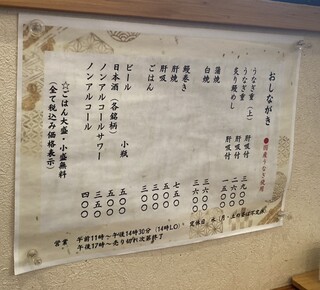 おしながき
●国産うなぎ使用
うなぎ重（上） 肝吸付 三九〇〇
うなぎ重 肝吸付 二六〇〇
炙り鰻めし 肝吸付
蒲焼 三六〇〇
白焼 三六〇〇
鰻巻き
肝焼 七五〇
肝吸 三〇〇
ごはん 三〇〇
ビール 小瓶 五〇〇
日本酒（各銘柄） 五〇〇
ノンアルコールサワー 三五〇
ノンアルコール 四〇〇
☆ごはん大盛・小盛無料
（全て税込み価格表示）
営業 午前11時〜午後14時30分（14時LO）
午後17時〜売り切れ次第終了